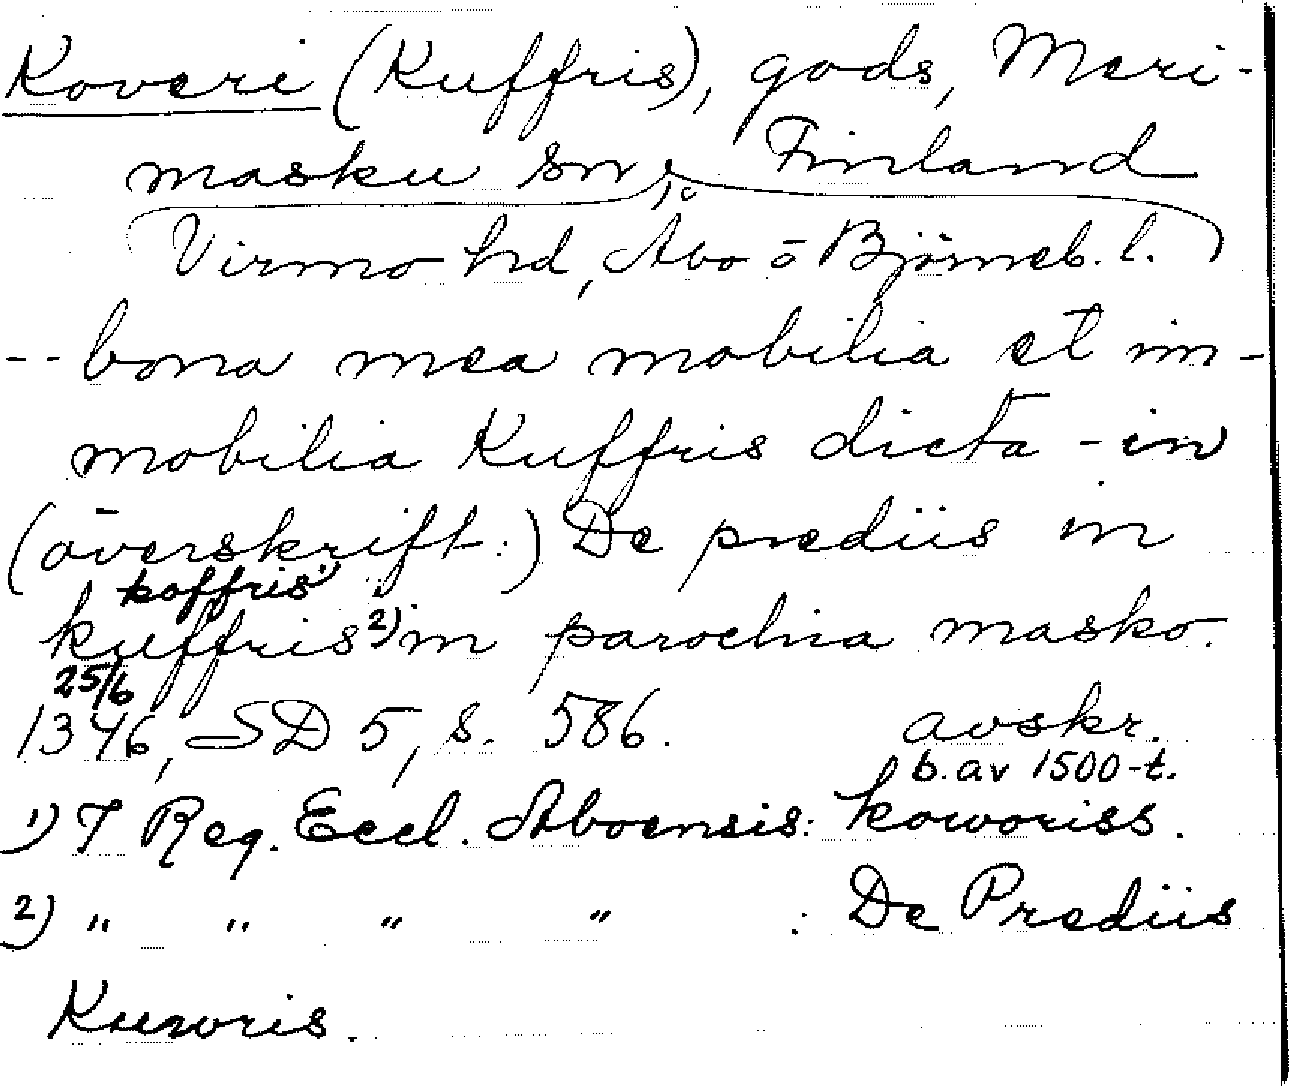 Koveri (Kuffris), gods, Meri-
masku sn, Finland
Virmo hd, Åbo o Björneb. l.
-- bona mea mobilia et im-
mobilia Kuffris dicta - in
(överskrift:) De prediis in
koffris 1)
kuffris 2) in parochia masko.
25/6
1346, SD 5, s. 586. avskr.
b. av 1500-t.
1) I Reg. Eccl. Aboensis: koworiss.
2) " " " " : De Prediis
Kuworis.